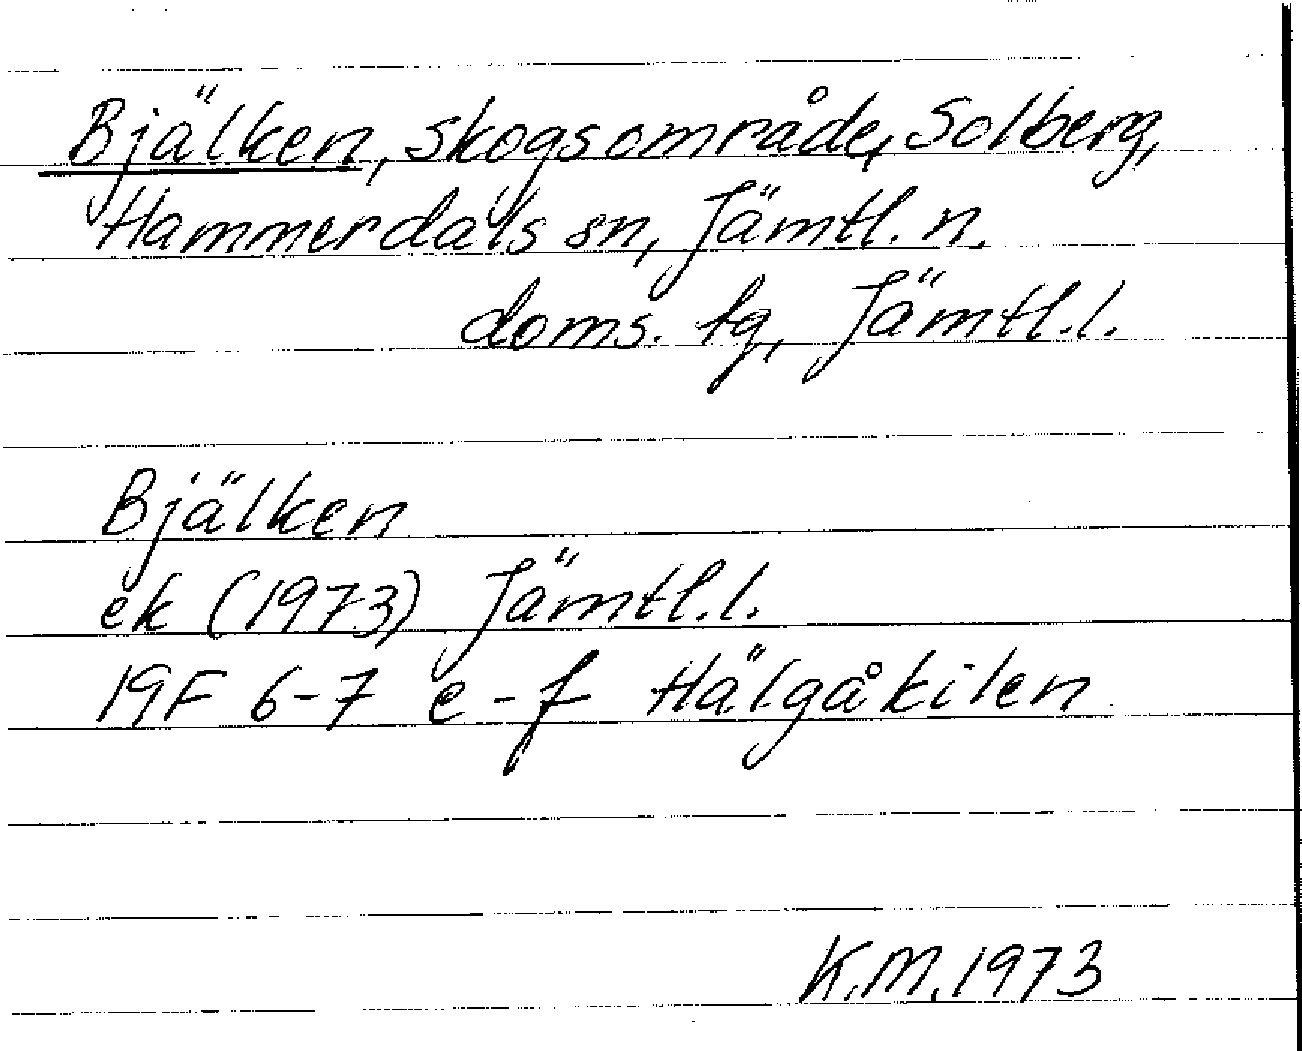 Bjälken, skogsområde, Solberg,
Hammerdals sn, Jämtl. n.
doms. tg, Jämtl.l.
Bjälken
ek (1973) Jämtl.l.
19F 6-7 e-f Hälgåkilen
K.M. 1973